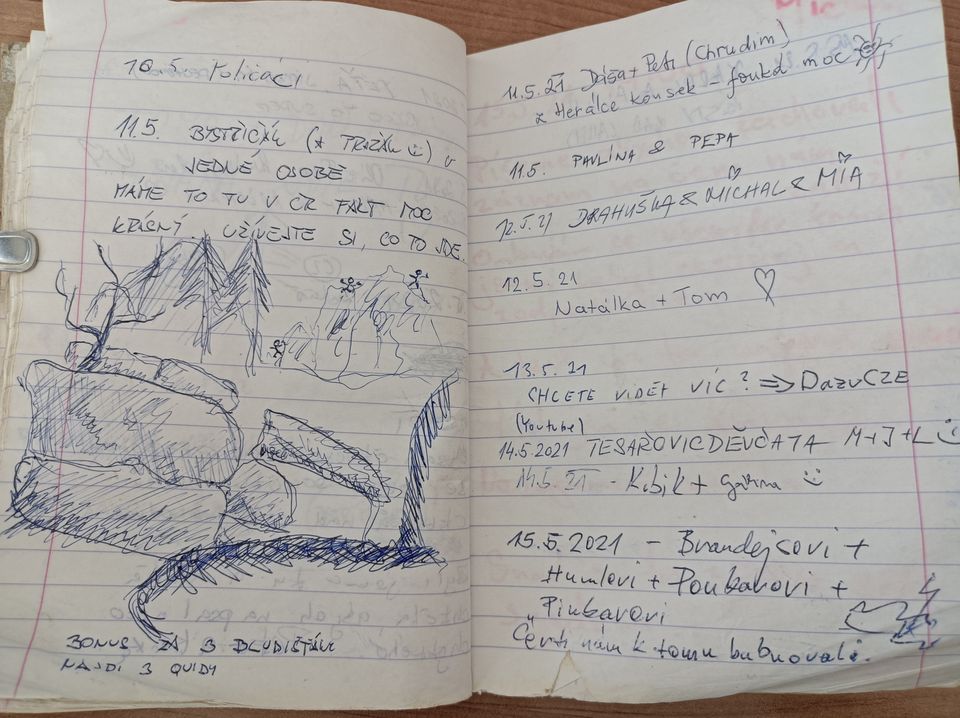 10.5. Poličáci
11.5. BYSTŘIČÁK (+ PRAŽÁK) V
JEDNÉ OSOBĚ
MÁME TO TU V ČR FAKT MOC
KRÁSNÝ. UŽÍVEJTE SI, CO TO JDE.
BONUS ZA 3 BLUDIŠŤÁKY
NAJDI 3 QUIDY
11.5.21 Dáša + Petr (Chrudim)
z Herálce kousek - fouká moc
11.5. PAVLÍNA & PEPA
12.5.21 DRAHUŠKA & MICHAL & MÍA
12.5.21
Natálka + Tom
13.5.21
CHCETE VIDĚT VÍC? => DazvCZE
(Youtube)
14.5.2021 TESAŘOVIC DĚVČATA M+J+L
14.5.21 - Kubik +
15.5.2021 - Brandejsovi +
Humlovi + Poukarovi +
Pinkarovi
Čerti nám k tomu bubnovali.